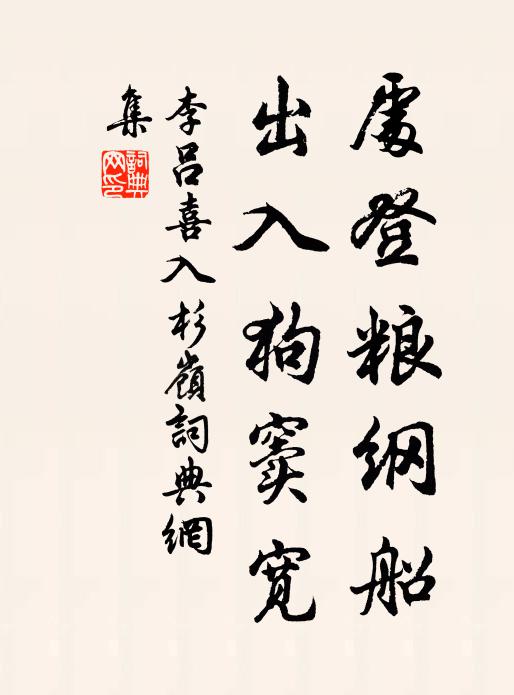 屡登粮纲船
出入狗窦宽
李吕喜入杉嶺詞典網
集
詞典
网印